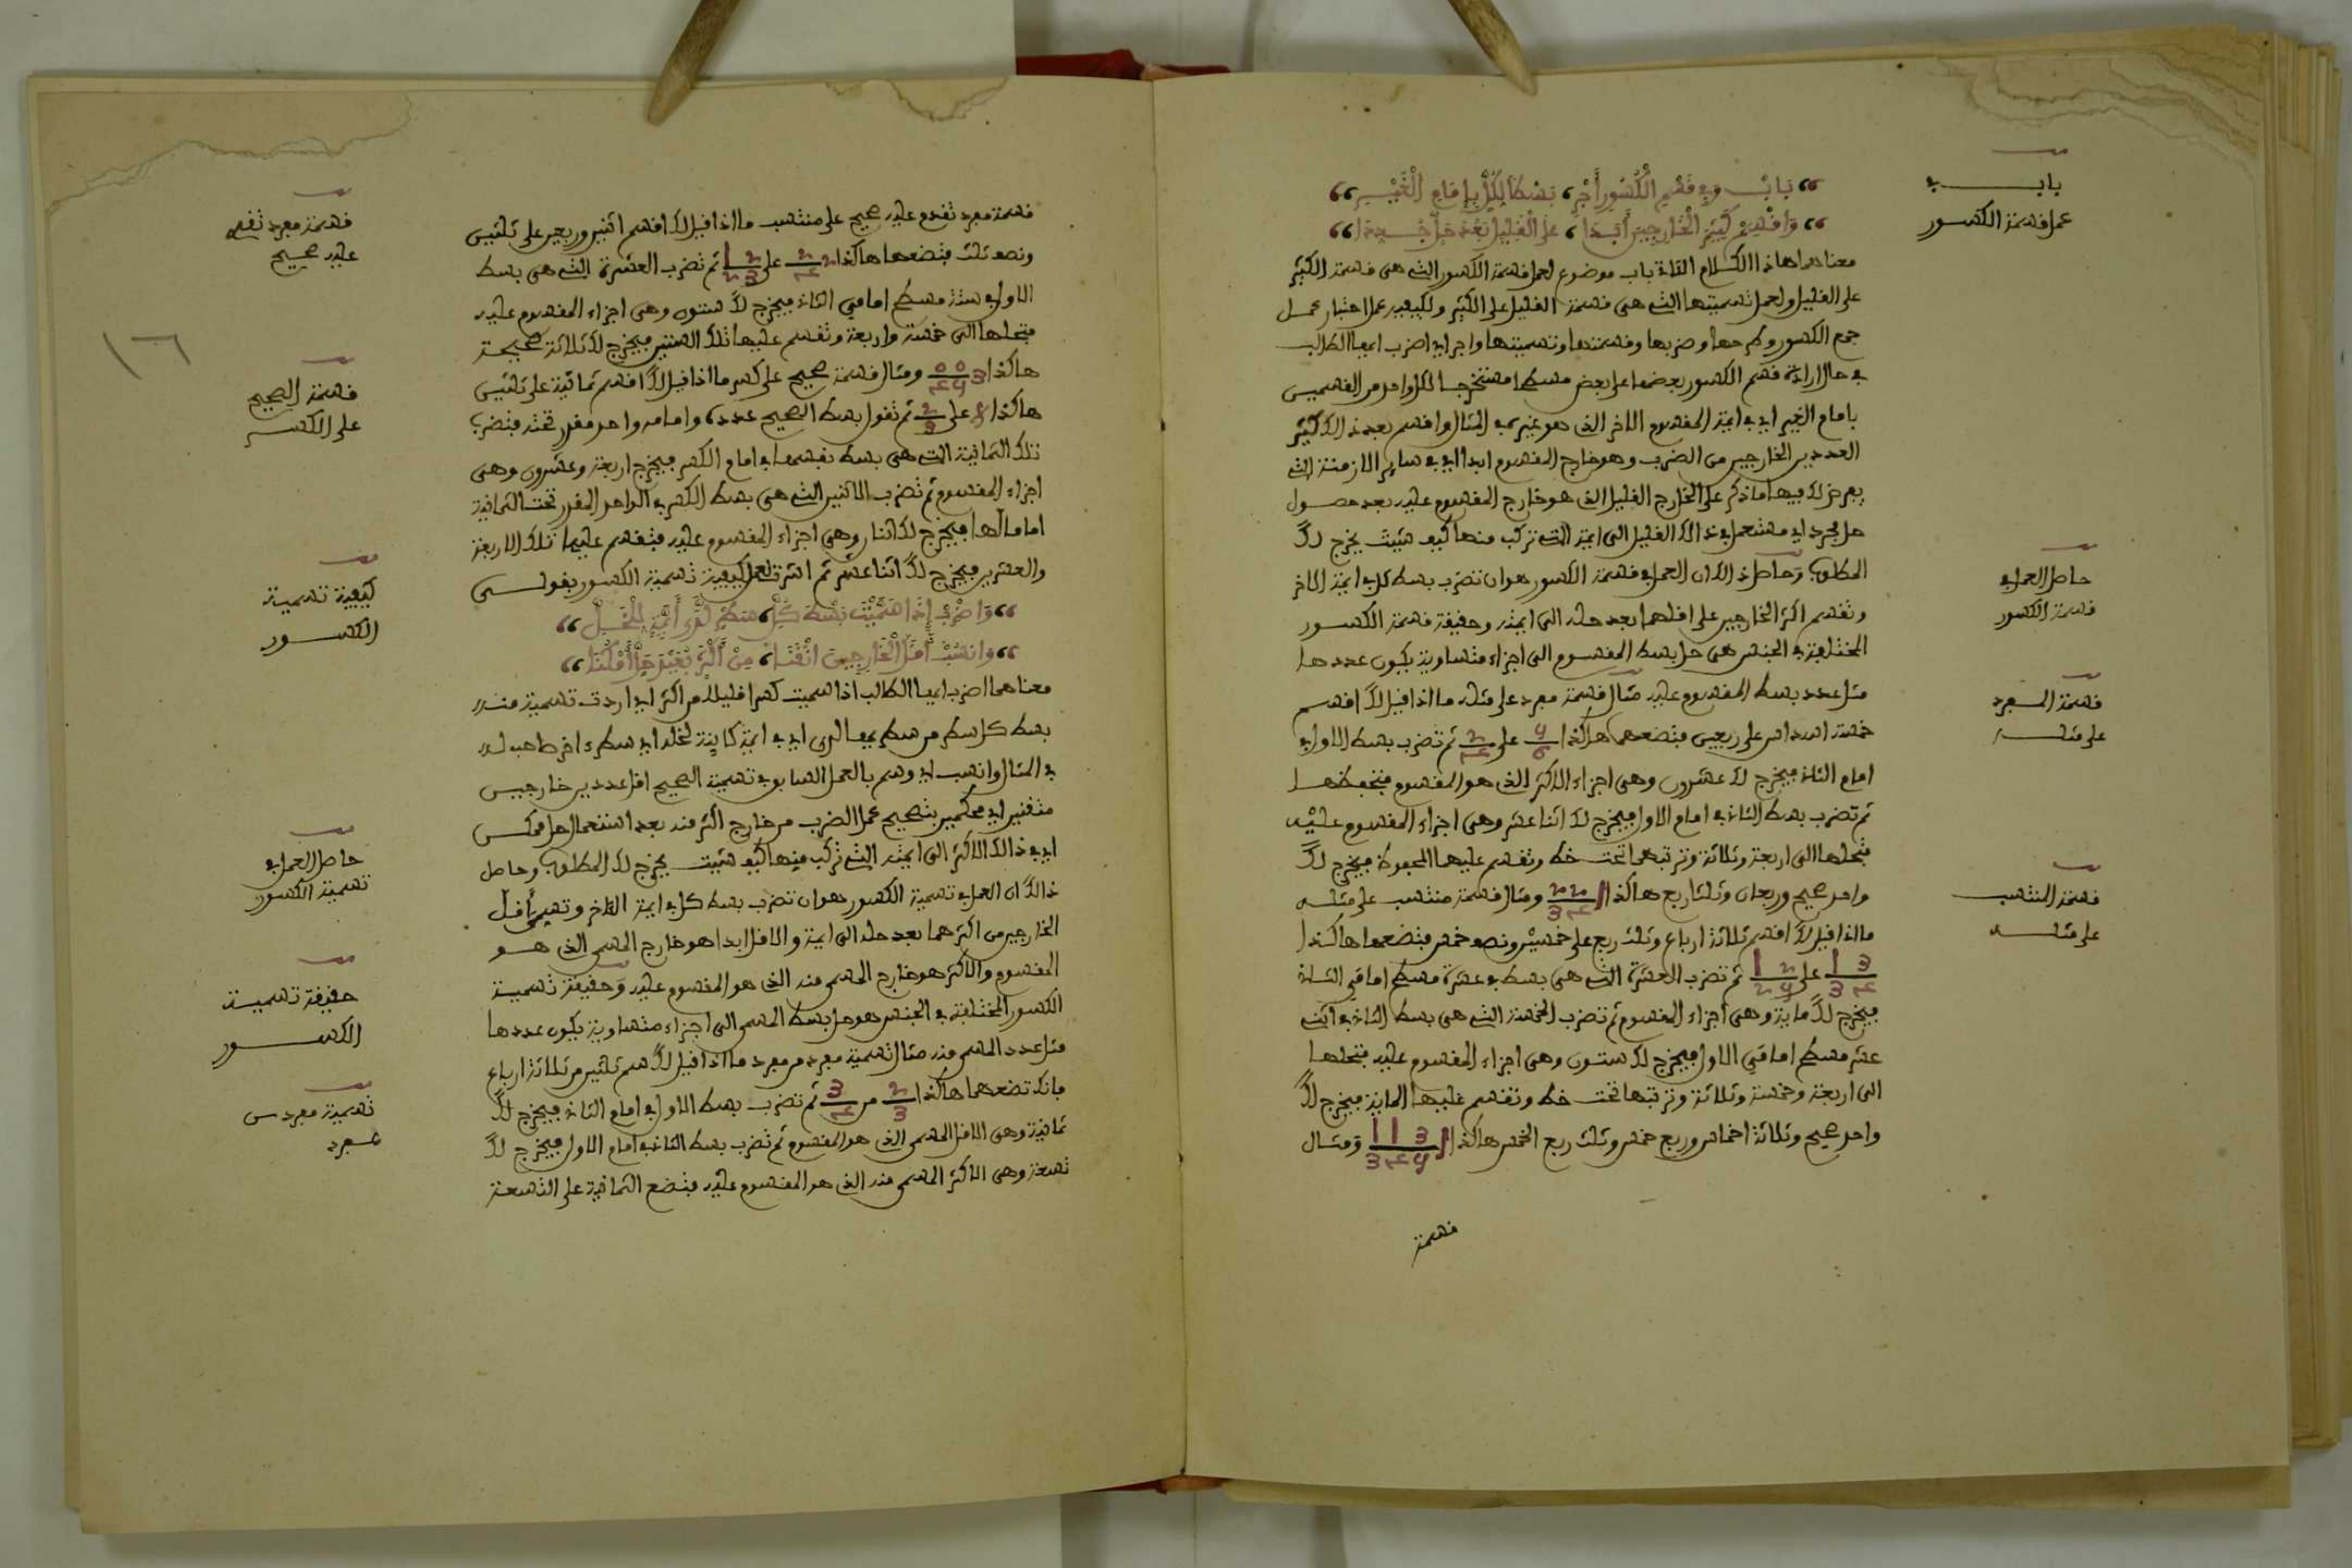 باب في
عمل قسمة الكسور
باب وفي قسم الكسور أجر، بسطا لكل بإمام الغير
واقسم كثير الخارجين أبدا، على القليل بعد حل
معناهما هاذا الكلام الئات باب موضوع لعمل قسمة الكسور التي هي قسمة الكثير
على القليل ولعمل تسميتها التي هي قسمة القليل على الكثير ولكيفية عمل اختبار عمل
جمع الكسور وطرحها وضربها وقسمتها وتسميتها واجر اي اضرب ايها الطالب
في حال ارادة قسم الكسور بعضها على بعض مسطحا مستخرجا لكل واحد من القسمين
بامام الغير اي في ايمة المقسوم الاخر الذي هو غيره في المثال واقسم بعد ذالك كثير
العددين الخارجين من الضرب وهو خارج المقسوم ابدا اي في سائر الازمنة التي
يعرض لك فيها ما ذكر على الخارج القليل الذي هو خارج المقسوم عليه بعد حصول
حل مجرد اي مستعمل في ذالك القليل الى ايمة التي تركب منها كيف شئت يخرج لك
حاصل العمل في
قسمة الكسور
المطلوب وحاصل ذالك ان العمل في قسمة الكسور هو ان تضرب بسط كل في ايمة الاخر
وتقسم اكثر الخارجين على اقلهما بعد حله الى ايمته وحقيقة قسمة الكسور
المختلفة في الجنس هي حل بسط المقسوم الى اجزاء متساوية يكون عددها
قسمة المفرد
على مثله
مثل عدد بسط المقسوم عليه مثال قسمة مفرد على مثله ما اذا قيل لك اقسم
خمسة اسداس على ربعين فتضعهما هاكذا 5/6 على 2/4 ثم تضرب بسط الاول في
امام الثاني فيخرج لك عشرون وهي اجزاء الاكثر الذي هو المقسوم فتحفظها
ثم تضرب بسط الثاني في امام الاول فيخرج لك اثنا عشر وهي اجزاء المقسوم عليه
فتحلها الى اربعة وثلاثة وترتبهما تحت خط وتقسم عليها المحفوظ فيخرج لك
قسمة المنتسب
على مثله
واحد صحيح وربعان وثلثا ربع هاكذا 1 2 2/3 4 ومثال قسمة منتسب على مثله
ما اذا قيل لك اقسم ثلاثة ارباع وثلث ربع على خمسين ونصف خمس فتضعها هاكذا
1 3/3 4 على 1 2/2 5 ثم تضرب العشرة التي هي بسط في عشرة مسطح امامي الثاني
فيخرج لك ماية وهي اجزاء المقسوم ثم تضرب الخمسة التي هي بسط الثاني في اثني
عشر مسطح امامي الاول فيخرج لك ستون وهي اجزاء المقسوم عليه فتحلها
الى اربعة وخمسة وثلاثة وترتبها تحت خط وتقسم عليها الماية فيخرج لك
واحد صحيح وثلاثة اخماس وربع خمس وثلث ربع الخمس هاكذا 1 1 1 3/3 4 5 ومثال
قسمة
قسمة مفرد تقدم
عليه صحيح
قسمة مفرد تقدم عليه صحيح على منتسب ما اذا قيل لك اقسم اثنين وربعين على ثلثين
ونصف ثلث فتضعها هاكذا 2 2/4 على 1 2/2 3 ثم تضرب العشرة التي هي بسط
الاول في ستة مسطح امامي الثاني فيخرج لك ستون وهي اجزاء المقسوم عليه
فتحلها الى خمسة واربعة وتقسم عليها تلك الستين فيخرج لك ثلاثة صحيحة
١٦
قسمة الصحيح
على الكسر
هاكذا 3 0 0/4 5 ومثال قسمة صحيح على كسر ما اذا قيل لك اقسم ثمانية على ثلثين
هاكذا 8 على 2/3 ثم تقول بسط الصحيح عدده وامامه واحد مقرر تحته فتضرب
تلك الثمانية التي هي بسط نفسها في امام الكسر فيخرج اربعة وعشرون وهي
اجزاء المقسوم ثم تضرب الاثنين التي هي بسط الكسر في الواحد المقرر تحت الثمانية
اماما لها فيخرج لك اثنان وهي اجزاء المقسوم عليه فتقسم عليها تلك الاربعة
كيفية تسمية
الكسور
والعشرين فيخرج لك اثنا عشر ثم اشرت لعمل كيفية تسمية الكسور بقولي
واضرب إذا سميت بسط كل، سطر لدى أيمة للخل
وانسب أقل الخارجين اتقنا، من أكثر بغير حل أمكنا
معناهما اضرب ايها الطالب اذا سميت كسرا قليلا من اكثر اي اردت تسمية منه
بسط كل سطر من سطريهما لدى اي في ايمة كاينة لخله اي سطره اخر صاحب له
في المثال وانسب اي وسم بالعمل السابق في تسمية الصحيح اقل عددين خارجين
متقنين اي محكمين بتصحيح عمل الضرب من خارج اكثر منه بعد استعمال حل ممكن
حاصل العمل في
تسمية الكسور
اي في ذالك الاكثر الى ايمته التي تركب منها كيف شئت يخرج لك المطلوب وحاصل
ذالك ان العمل في تسمية الكسور هو ان تضرب بسط كل في ايمة الاخر وتسمي أقل
الخارجين من اكثرهما بعد حله الى ايمة والاقل ابدا هو خارج المسمى الذي هو
حقيقة تسمية
الكسور
المقسوم والاكثر هو خارج المسمى منه الذي هو المقسوم عليه وحقيقة تسمية
الكسور المختلفة في الجنس هو حل بسط المسمى الى اجزاء متساوية يكون عددها
تسمية مفرد من
مفرد
مثل عدد المسمى منه مثال تسمية مفرد من مفرد ما اذا قيل لك سم ثلثين من ثلاثة ارباع
فانك تضعهما هاكذا 2/3 من 3/4 ثم تضرب بسط الاول في امام الثاني فيخرج لك
ثمانية وهي الاقل المسمى الذي هو المقسوم ثم تضرب بسط الثاني في امام الاول فيخرج لك
تسعة وهي الاكثر المسمى منه الذي هو المقسوم عليه فتضع الثمانية على التسعة